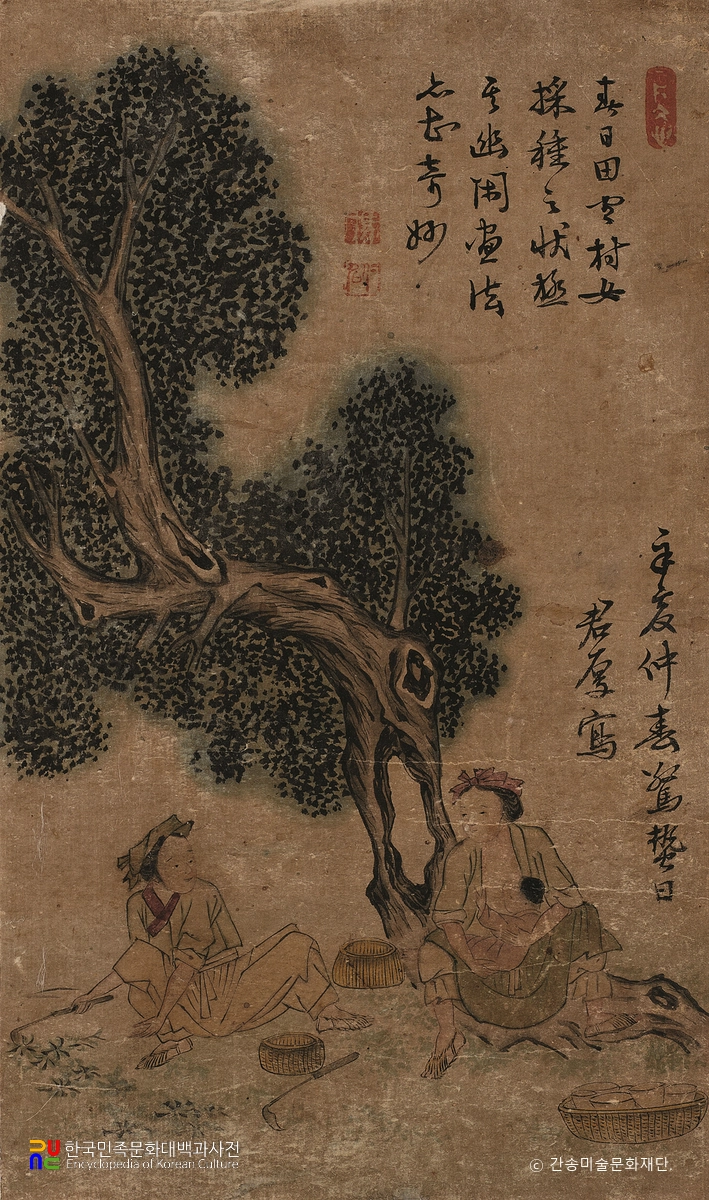 春日田村女
採種之狀極
其幽閑畫法
亦甚奇妙
辛亥仲春驚蟄日
君厚寫
한국민족문화대백과사전
Encyclopedia of Korean Culture
© 간송미술문화재단.